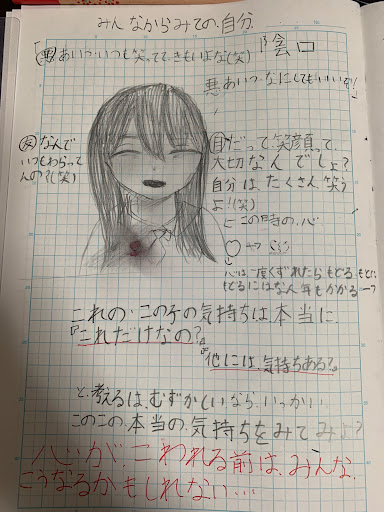 みんなからみての、自分.
「悪あいつ、いつも笑っててきもいよな(笑)
陰口
悪あいつ、なにしてもいいぞ!
友なんで
いつもわらって
んの?(笑)
自だって、笑顔って、
大切なんでしょ?
自分は、たくさん笑う
よ!(笑)
この時の、心
心は一度くずれたらもどる、もとに
もどるにはなん年もかかる
これの、この子の気持ちは本当に、
『これだけなの?』
『他には、気持ちある?』
と、考えるは、むずかしいなら、いっかい
このこの、本当の、気持ちをみてみよ?
心が、こわれる前は、みんな、
こうなるかもしれない...